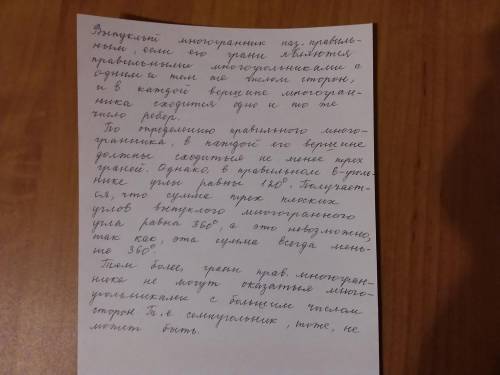 Выпуклый многогранник наз. правиль-
ным, если его грани являются
правильными многоугольниками с
одним и тем же числом сторон,
и в каждой вершине многогран-
ника сходится одно и то же
число ребер.
По определению правильного много-
гранника, в каждой его вершине
должны сходиться не менее трех
граней. Однако, в правильном 6-уголь-
нике углы равны 120°. Получает-
ся, что сумма трех плоских
углов выпуклого многогранного
угла равна 360°, а это невозможно,
так как, эта сумма всегда мень-
ше 360°.
Тем более, грани прав. многогран-
ника не могут оказаться много-
угольниками с большим числом
сторон. Т.е семиугольник, тоже, не
может быть.